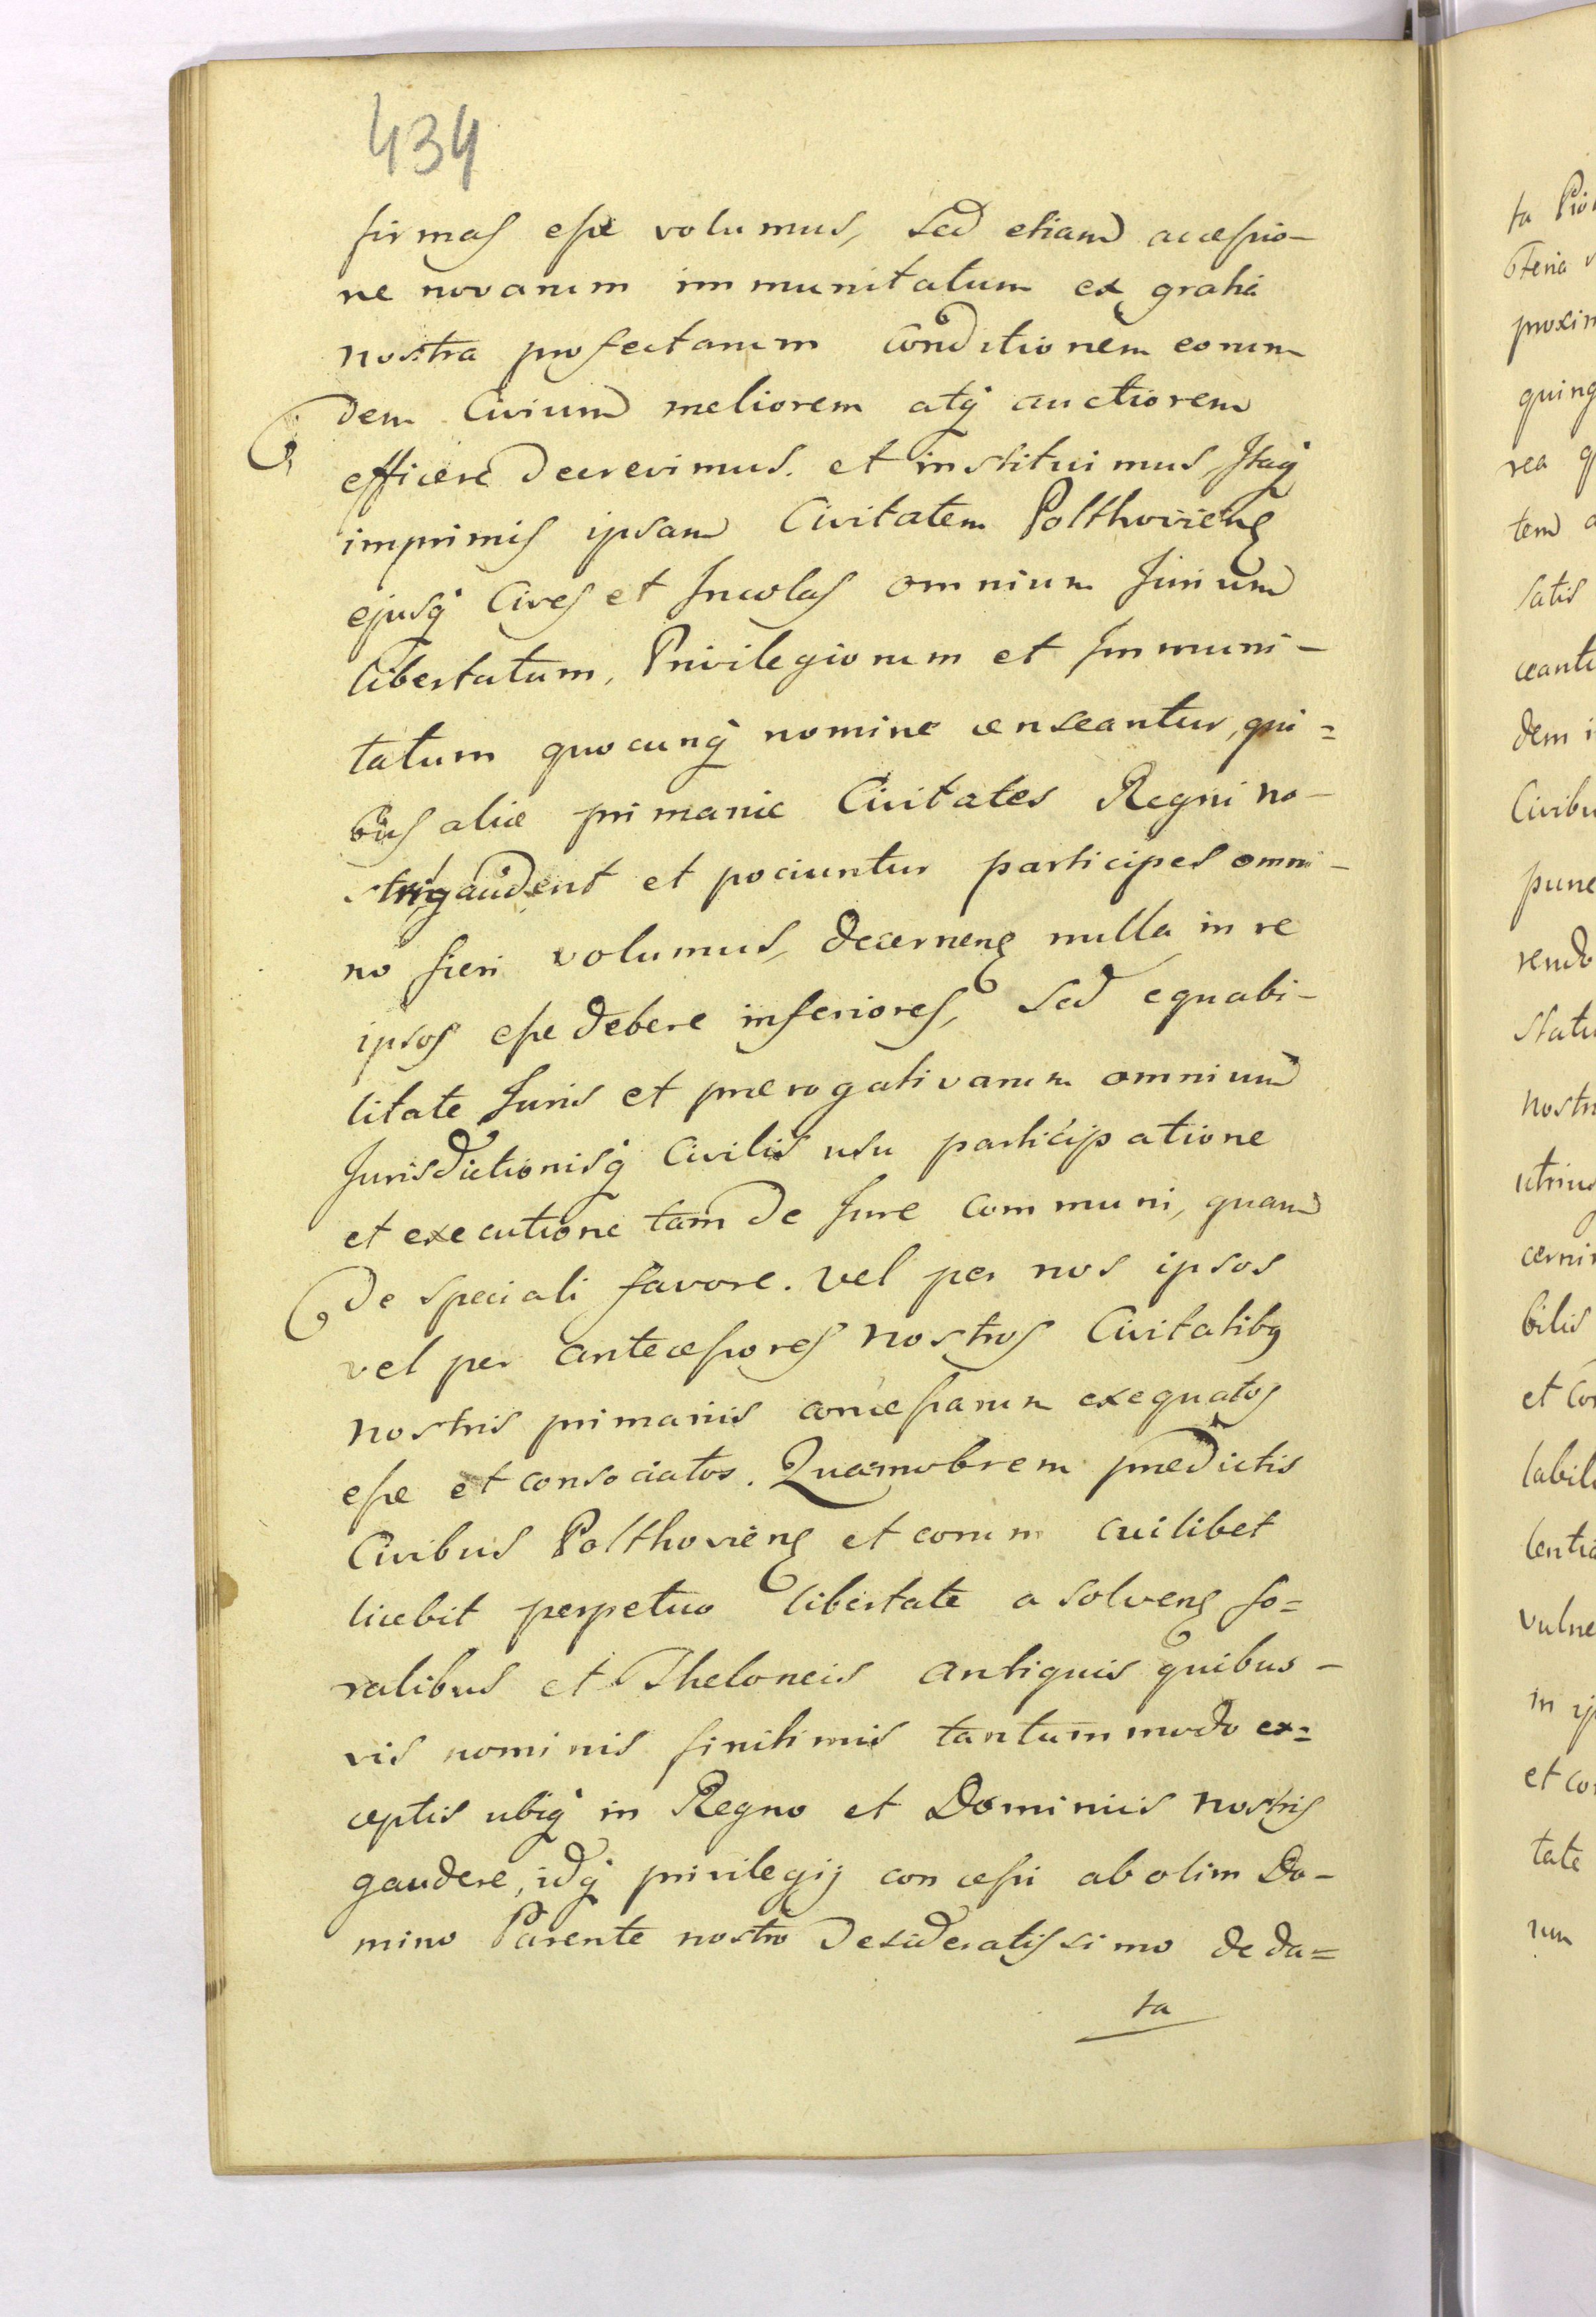 434
firmas esse volumus, sed etiam accessio-
ne novarum immunitatum ex gratia
nostra profectarum Conditionem eorun
dem Civium meliorem atq auctiorem
efficere decrevimus. et instituimus Itaq
imprimis ipsam Civitatem Polthovieng
ejusq Cives et Incolas omnium Jurium
libertatum, Privilegiorum et Immuni-
tatum quocunq nomine censeantur, qui=
bus aliæ primariæ Civitates Regni no-
stri gaudent et pociuntur participes omni-
no fieri volumus, decerneng nulla in re
ipsos esse debere inferiores, sed equabi-
litate Juris et prærogativarum omnium
Jurisdictionisq Civilis usu participatione
et executione tam de Jure communi, quam
de speciali favore. vel per nos ipsos
vel per antecessores nostros Civitatibq
nostris primariis concessarum exequatos
esse et consociatos. Quamobrem prædictis
Civibus Polthovieng et eorum cuilibet
licebit perpetuo libertate a solveng fo=
ralibus et Theloneis antiquis quibus-
vis nominis finitimis tantummodo ex=
ceptis ubiq in Regno et Dominiis nostris
gaudere, idq privilegij concessi ab olim Do-
mino Parente nostro desideratissimo de da=
ta